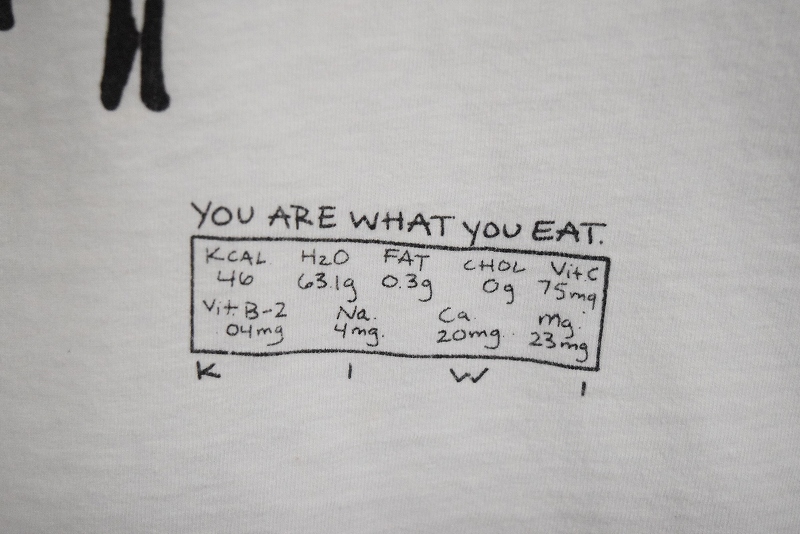 YOU ARE WHAT YOU EAT.
KCAL H2O FAT CHOL Vit.C
46 63.1g 0.3g 0g 75mg
Vit. B-2 Na. Ca. Mg.
.04mg 4mg. 20mg. 23mg
K I W I